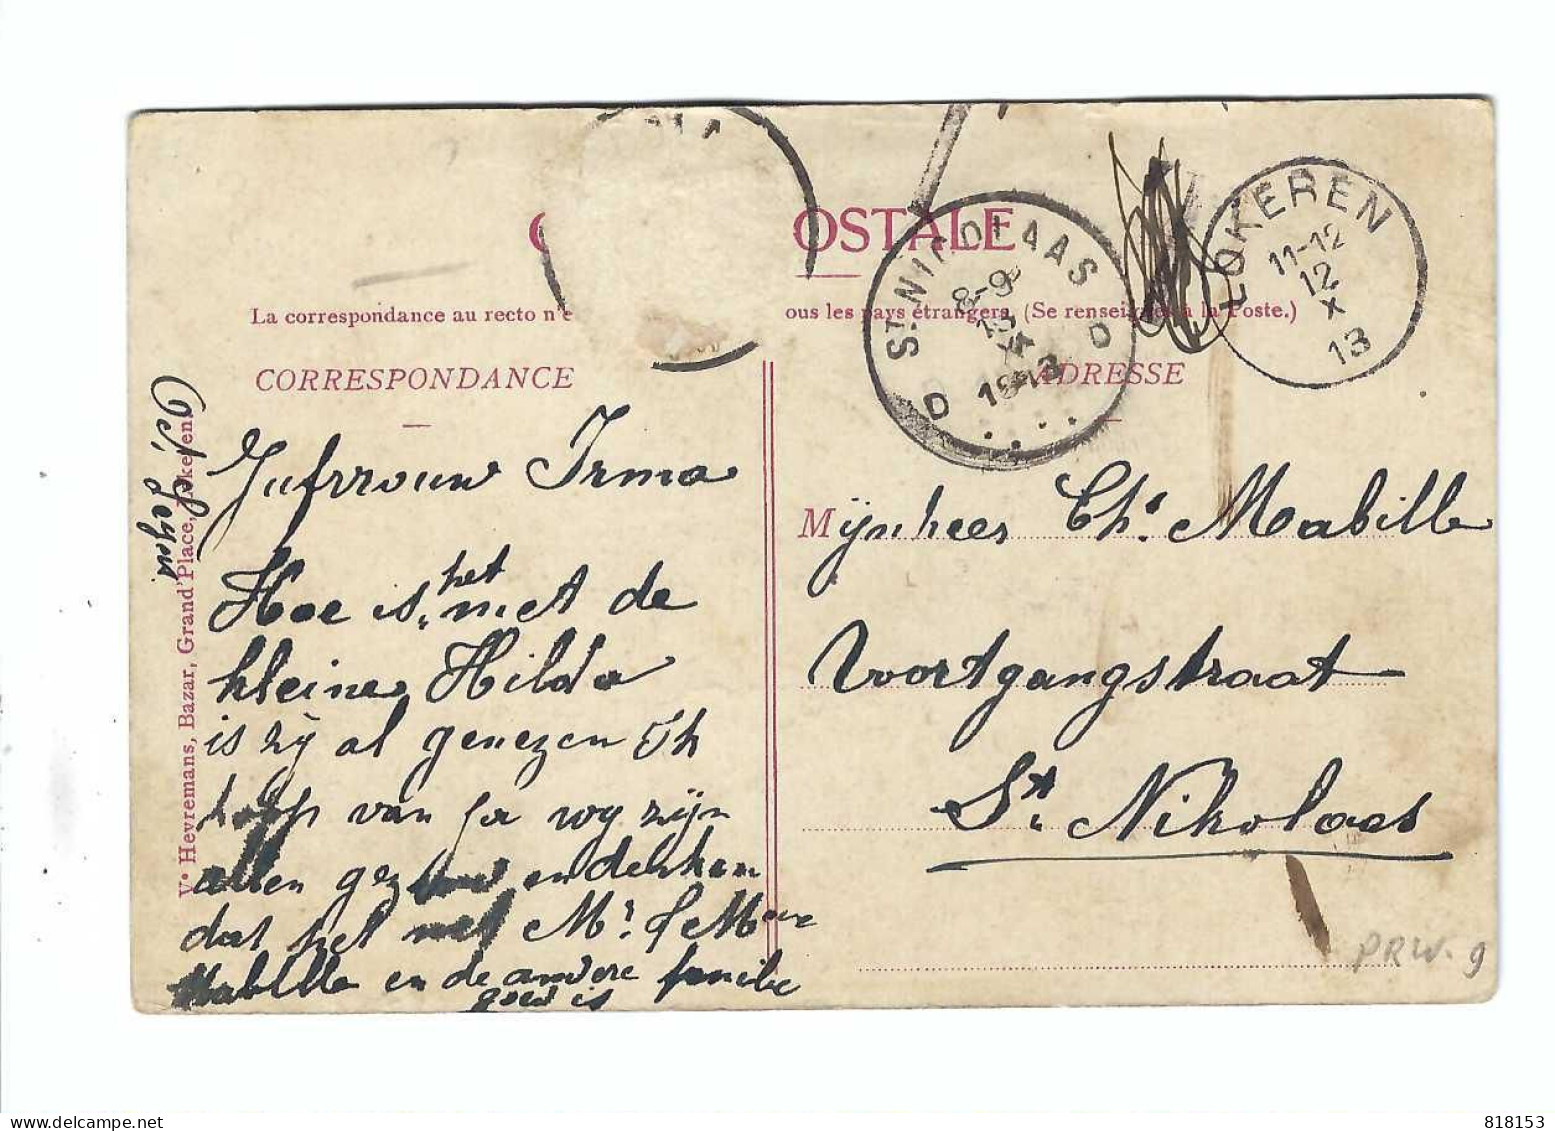 OSTALE
La correspondance au recto n'e ous les pays étrangers. (Se renseigner à la Poste.)
CORRESPONDANCE
ADRESSE
Ve Heyremans, Bazar, Grand'Place, Lokeren.
ST NICOLAAS
8-9
13
X
1913
D D
LOKEREN
11-12
12
X
13
Jufrrouw Irma
Hoe is het met de
kleine Hilda
is zij al genezen Ik
hoop van ja wy zijn
allen gezond en denken
dat het met Mr & Meve
Mabille en de andere familie
goed is
Mijnheer Chs Mabille
Voortgangstraat
St. Nikolaas
PRW. 9
818153